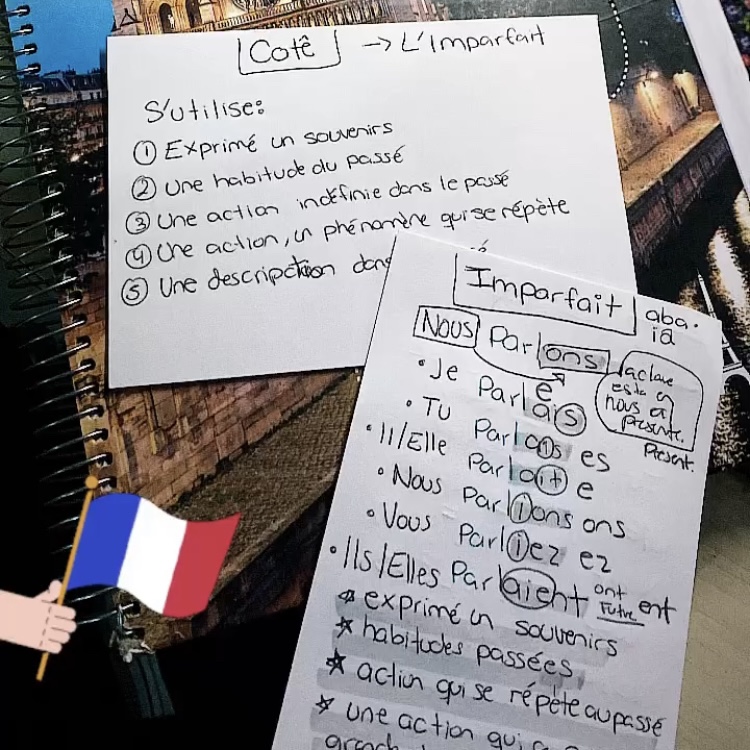 Cotê → L'Imparfait
S'utilise:
① Exprimé un souvenirs
② Une habitude du passé
③ Une action indéfinie dans le passé
④ Une action, un phénomène qui se répète
⑤ Une description dans
Imparfait aba.
ia
Nous Parlons
la clave
esta en
nous el
presente.
Present.
• Je Parlais e
• Tu Parlais es
• Il/Elle Parlait e
• Nous Parlions ons
• Vous Parliez ez
• Ils/Elles Parlaient ont ent
Futur
exprimé un souvenirs
★ habitudes passées
★ action qui se répète au passé
★ une action qui